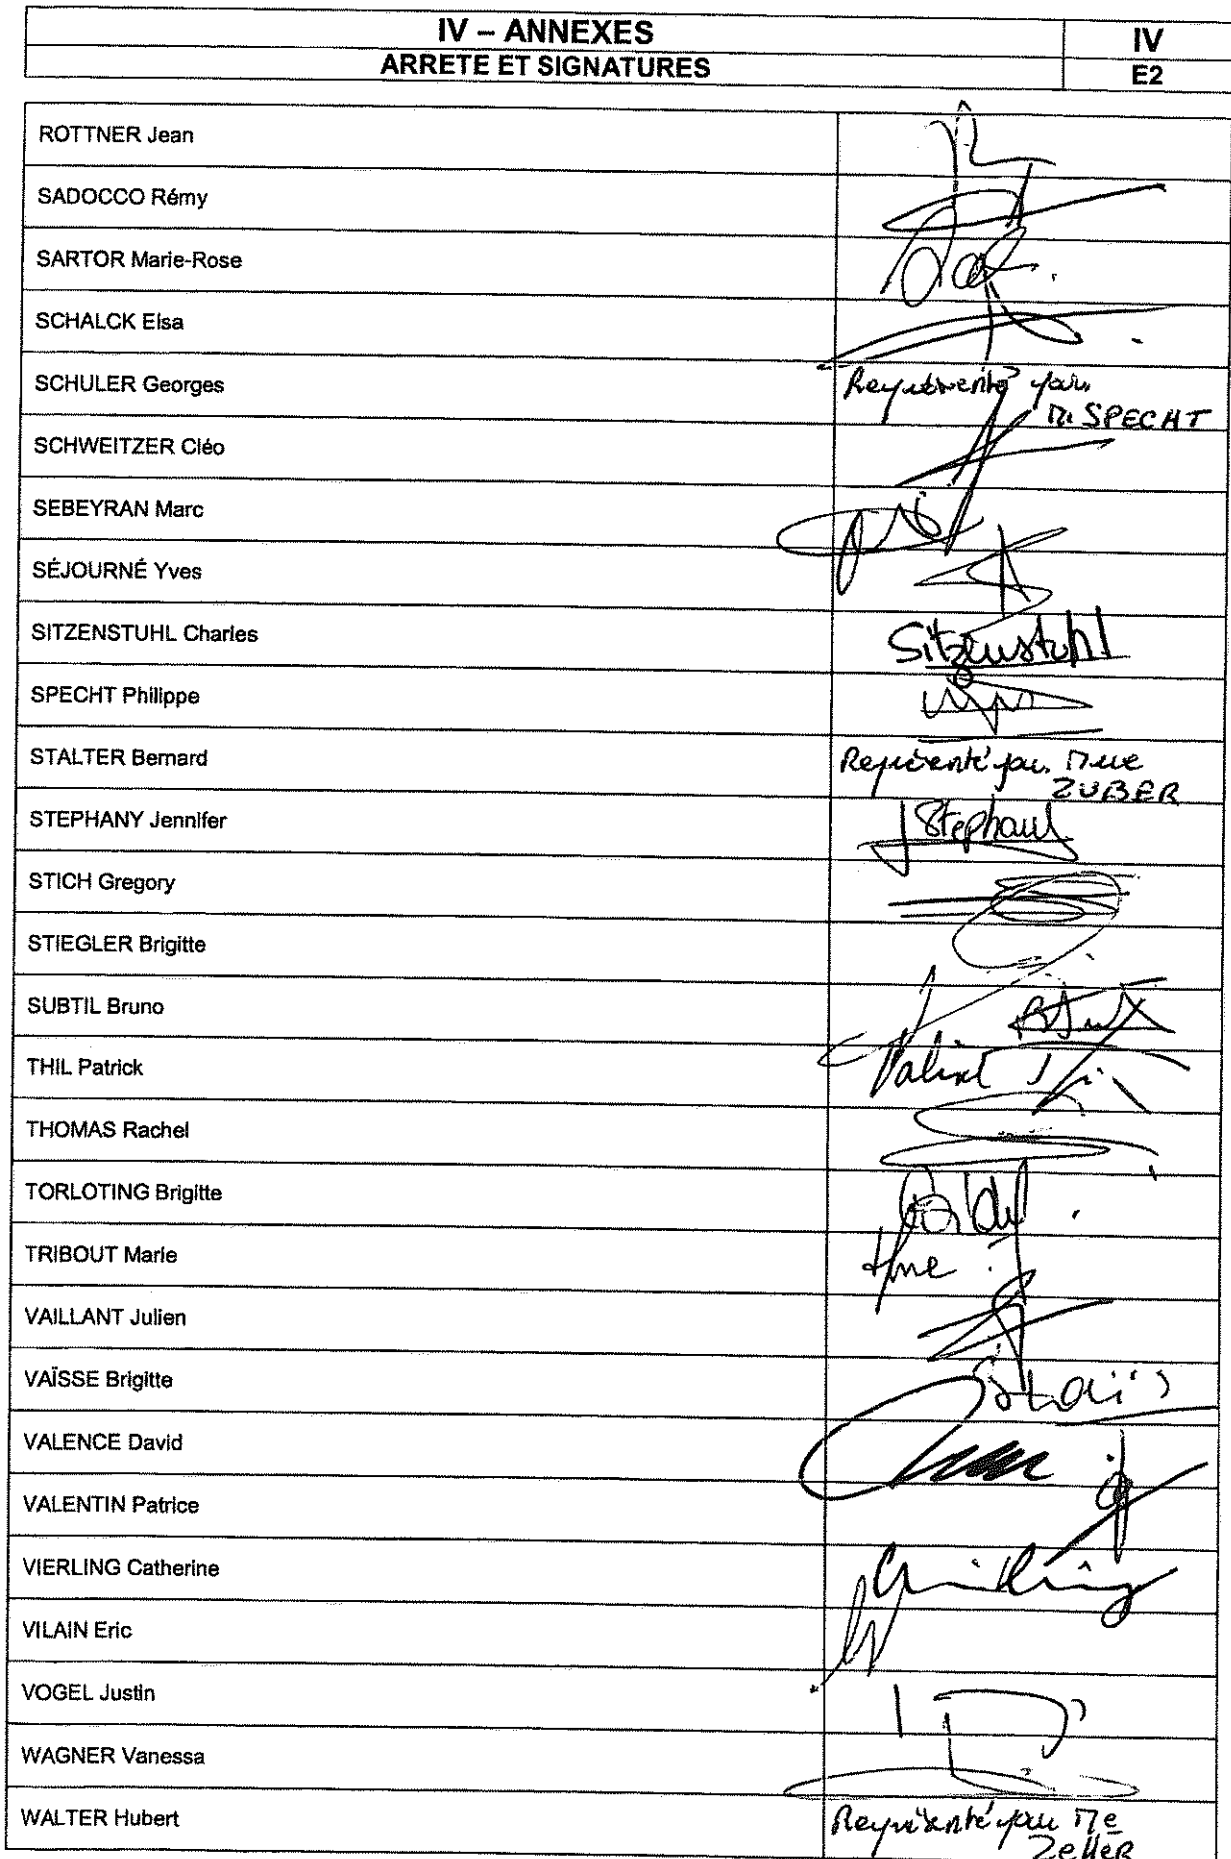 IV – ANNEXES
IV
ARRETE ET SIGNATURES
E2
ROTTNER Jean
SADOCCO Rémy
SARTOR Marie-Rose
SCHALCK Elsa
SCHULER Georges
Représenté par
M. SPECHT
SCHWEITZER Cléo
SEBEYRAN Marc
SÉJOURNÉ Yves
SITZENSTUHL Charles
Sitzenstuhl
SPECHT Philippe
STALTER Bernard
Représenté par Mme
ZUBER
STEPHANY Jennifer
JStephany
STICH Gregory
STIEGLER Brigitte
SUBTIL Bruno
THIL Patrick
THOMAS Rachel
TORLOTING Brigitte
TRIBOUT Marie
VAILLANT Julien
VAÏSSE Brigitte
VALENCE David
VALENTIN Patrice
VIERLING Catherine
VILAIN Eric
VOGEL Justin
WAGNER Vanessa
WALTER Hubert
Représenté par Me
Zeller